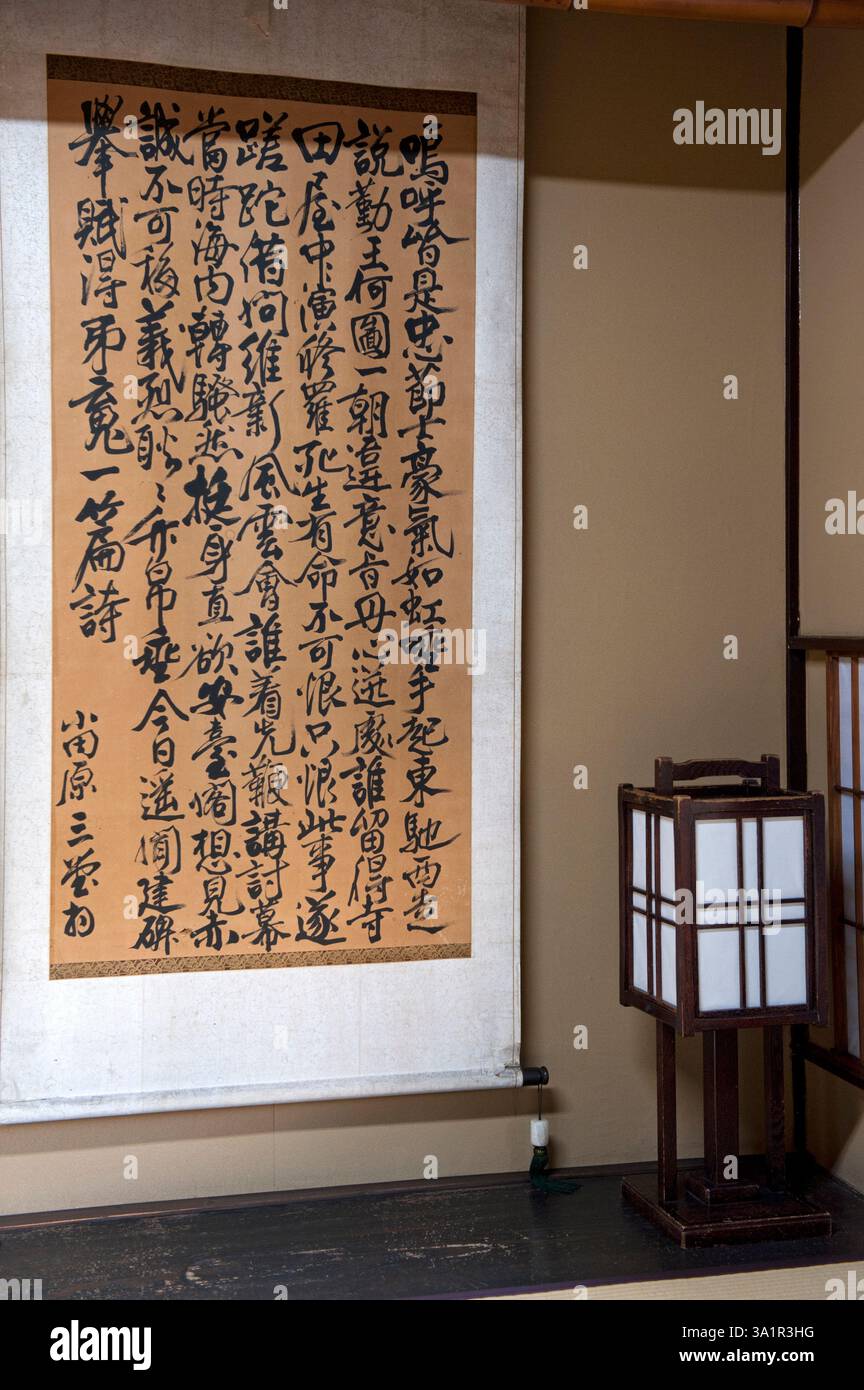 嗚呼皆是忠節士豪氣如虹唾手起東馳西走
說勤王何圖一朝意誰留得寺
田屋中演修羅死生有命不可恨只恨此事遂
蹉跎借問維新風雲會誰着先鞭講討幕
當時海內轉騷然挺身直欲安臺閣想見赤
誠不可移義烈耿〻竹帛垂今日遥聞建碑
擧賦得弔寃一篇詩
小田原三
alamy
Image ID: 3A1R3HG
www.alamy.com